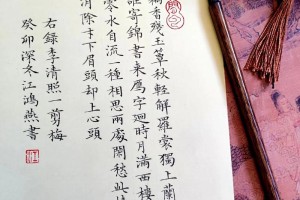 藕香殘玉簟秋輕解羅裳獨上蘭
誰寄錦書來鴈字迴時月滿西樓
零水自流一種相思兩處閒愁此情
消除才下眉頭却上心頭
右錄李清照一剪梅
癸卯深冬江鴻燕書